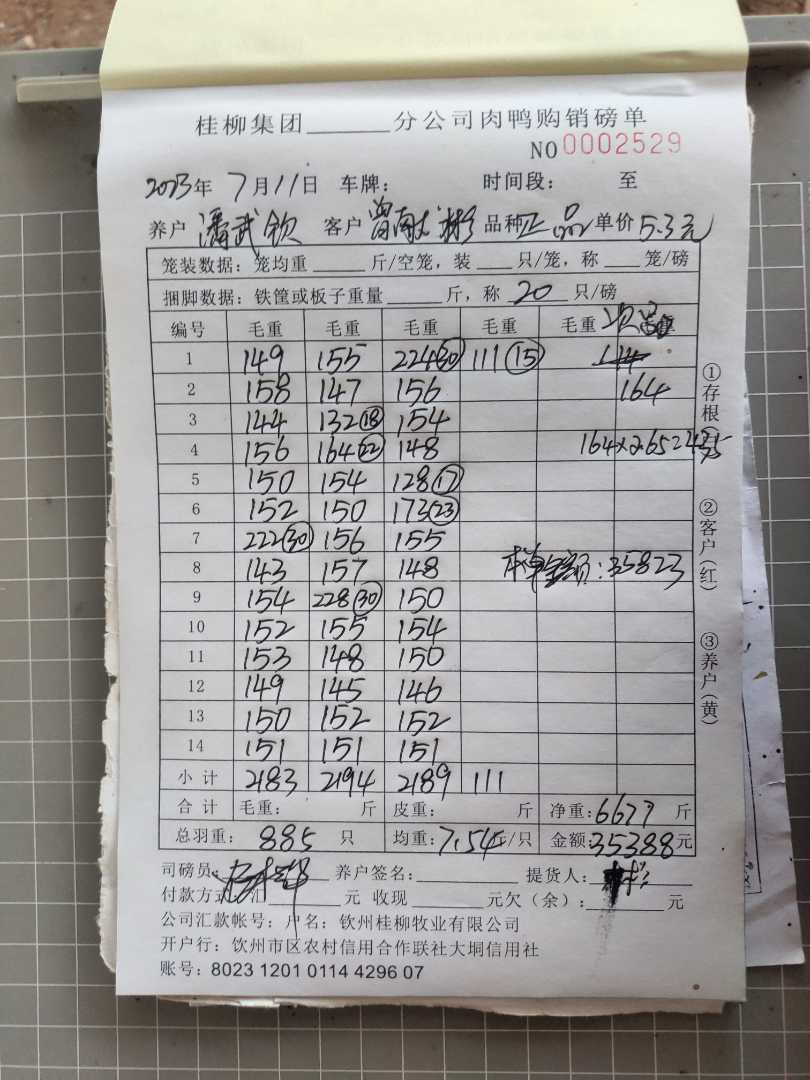 桂柳集团______分公司肉鸭购销磅单
NO 0002529
2023年 7月11日 车牌： 时间段： 至
养户 潘武钦 客户 曾献彬 品种 正品 单价 5.3元
笼装数据：笼均重____斤/空笼，装___只/笼，称___笼/磅
捆脚数据：铁筐或板子重量____斤，称 20 只/磅
编号 毛重 毛重 毛重 毛重 毛重
1 149 155 224(30) 111(15) 114
2 158 147 156 164
3 144 132(18) 154
4 156 164(22) 148 164×2.65=435
5 150 154 128(17)
6 152 150 173(23)
7 222(30) 156 155
8 143 157 148 本单金额：35823
9 154 228(30) 150
10 152 155 154
11 153 148 150
12 149 145 146
13 150 152 152
14 151 151 151
小计 2183 2194 2189 111
合计 毛重： 斤 皮重： 斤 净重：6677 斤
总羽重： 885 只 均重：7.54斤/只 金额：35388元
司磅员： 养户签名： 提货人：
付款方式：汇 元 收现 元欠（余）： 元
公司汇款帐号：户名：钦州桂柳牧业有限公司
开户行：钦州市区农村信用合作联社大垌信用社
账号：8023 1201 0114 4296 07
①存根
②客户（红）
③养户（黄）